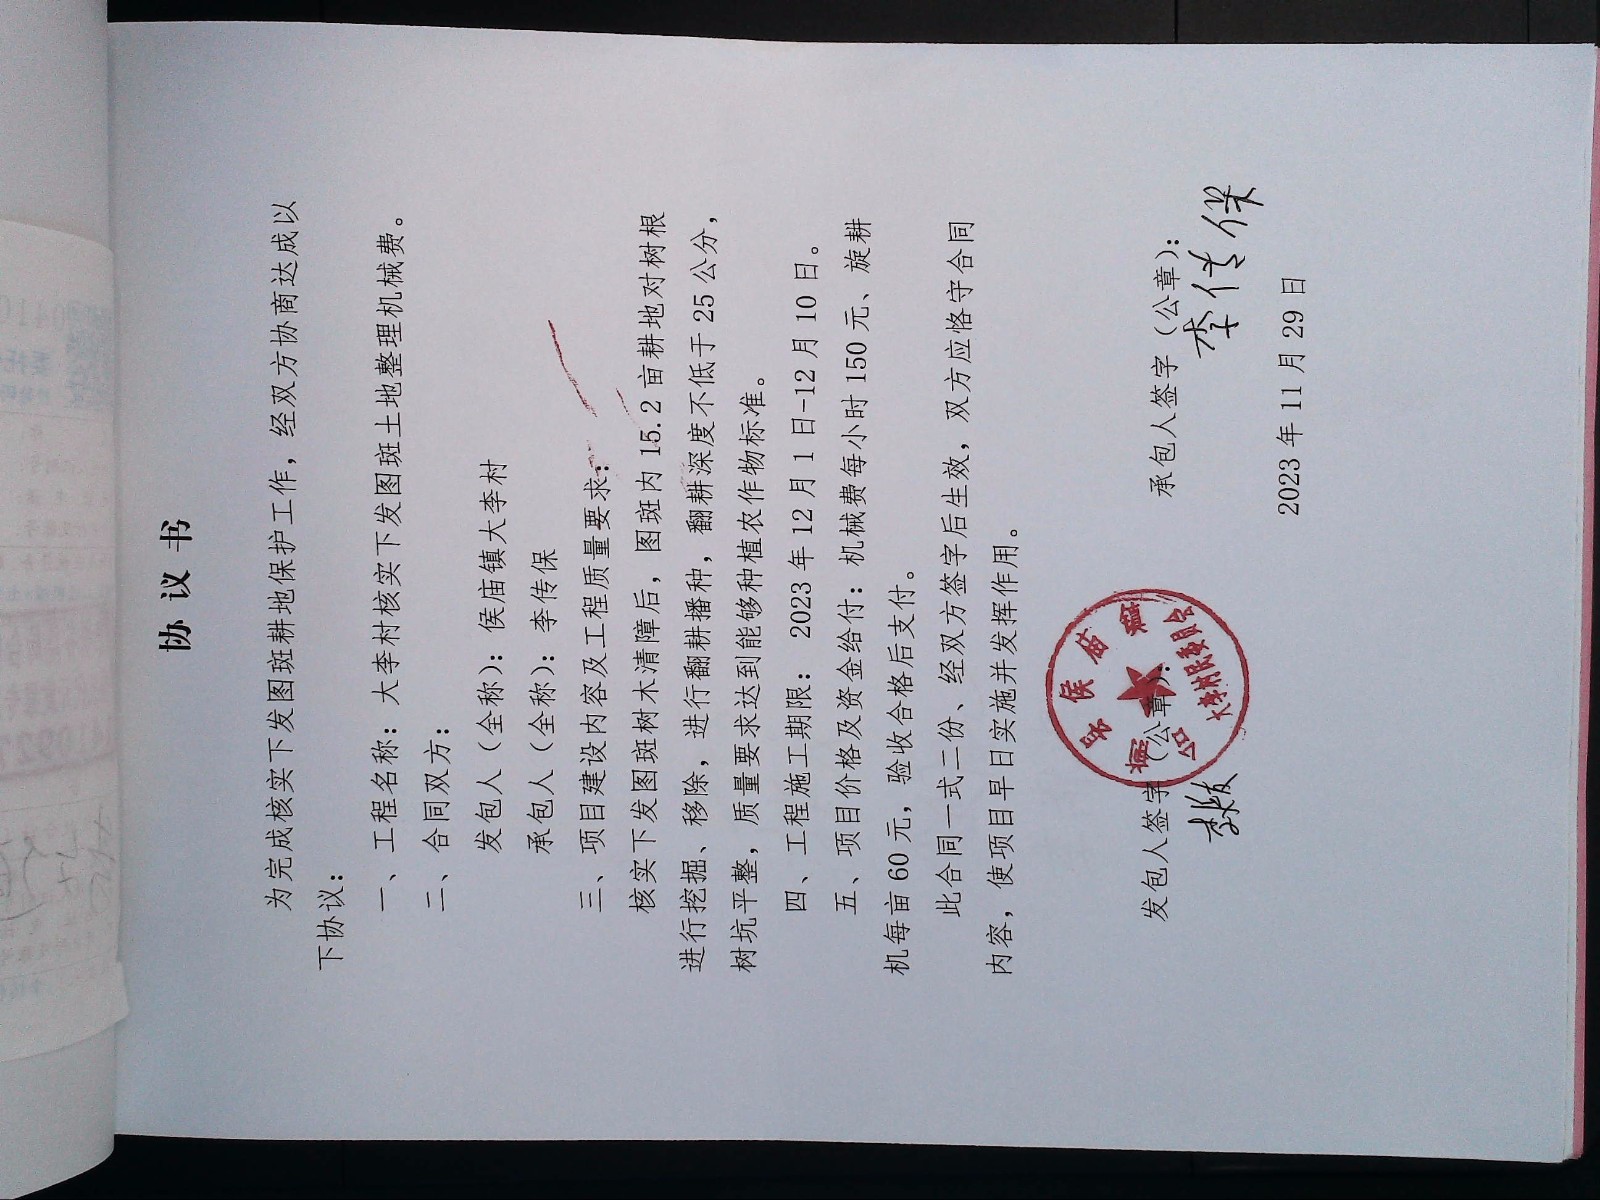 协 议 书
为完成核实下发图斑耕地保护工作，经双方协商达成以
下协议：
一、工程名称：大李村核实下发图斑土地整理机械费。
二、合同双方：
发包人（全称）：侯庙镇大李村
承包人（全称）：李传保
三、项目建设内容及工程质量要求：
核实下发图斑树木清障后，图斑内 15.2 亩耕地对树根
进行挖掘、移除，进行翻耕播种，翻耕深度不低于 25 公分，
树坑平整，质量要求达到能够种植农作物标准。
四、工程施工期限： 2023 年 12 月 1 日-12 月 10 日。
五、项目价格及资金给付：机械费每小时 150 元、旋耕
机每亩 60 元，验收合格后支付。
此合同一式二份、经双方签字后生效，双方应恪守合同
内容，使项目早日实施并发挥作用。
发包人签字（公章）： 承包人签字（公章）：
李传保
2023 年 11 月 29 日
侯庙镇
大李村村民委员会